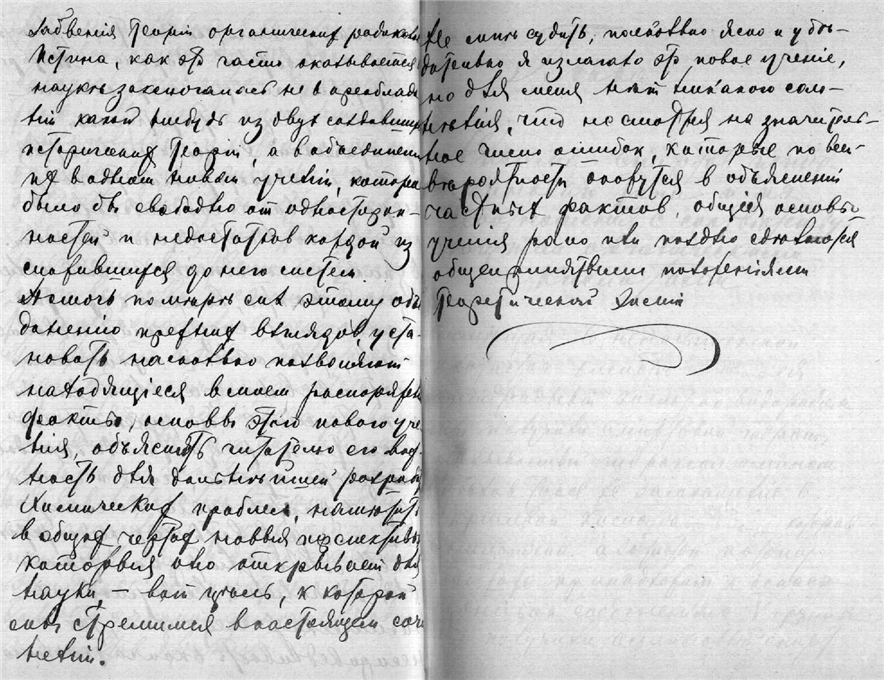 забвенія теоріи органическихъ радикаловъ
Истина, какъ это часто оказывается
наукѣ заключалась не въ преоблада
ніи какой нибудь изъ двухъ
историческихъ теорій, а въ объединеніи
ихъ въ одномъ новомъ ученіи, которое
было бы свободно отъ односторон-
ностей и недостатковъ каждой изъ
сложившихся до него системъ
Помочь по мѣрѣ силъ этому объе
диненію прежнихъ взглядовъ, уста-
новить насколько позволяютъ
находящіеся въ моемъ распоряженіи
факты, основы этого новаго уче
нія, объяснить читателю его важ
ность для дальнѣйшей разраб
химическихъ проблемъ, намѣтить
въ общихъ чертахъ новыя перспективы
которыя оно открываетъ для
науки, — вотъ цѣль, къ которой
мы стремимся въ настоящемъ сочи
неніи.
Не мнѣ судить, насколько ясно и убѣ-
дительно я излагаю это новое ученіе,
но для меня нѣтъ никакого сом-
нѣнія, что несмотря на значитель-
ное число ошибокъ, которыя по всей
вѣроятности окажутся въ объясненіи
частныхъ фактовъ, общія основы
ученія рано или поздно сдѣлаются
общепринятыми воззрѣніями
теоретической химіи